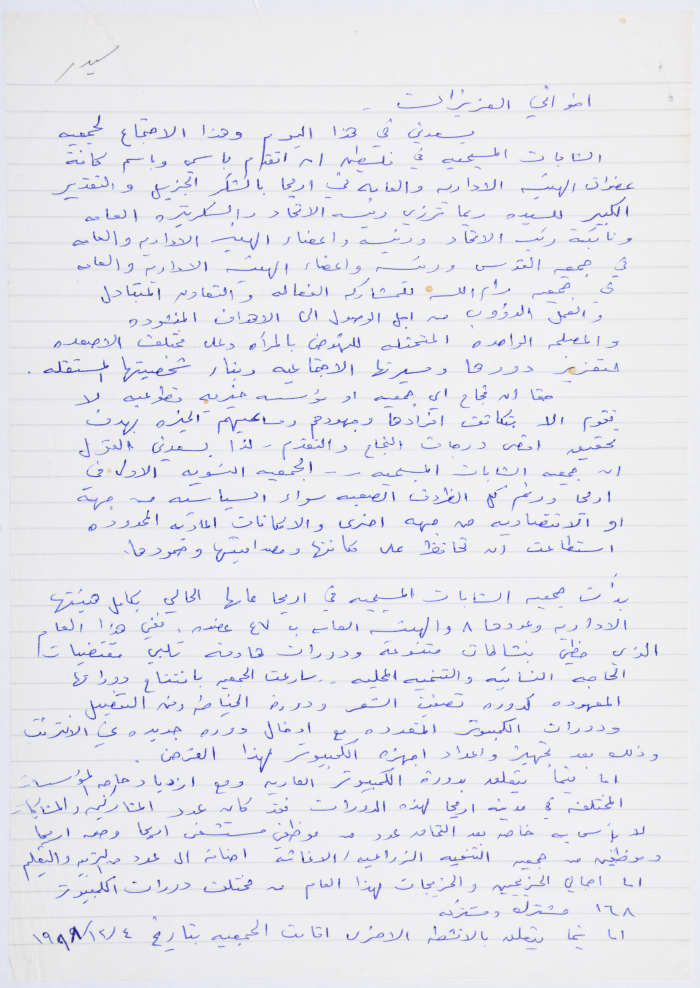 اخواتي العزيزات -
يسعدني في هذا اليوم وهذا الاجتماع لجمعيه
الشابات المسيحيه في فلسطين ان اتقدم باسمي وباسم كافة
عضوات الهيئه الاداريه والعامه في اريحا بالشكر الجزيل والتقدير
الكبير للسيده ريما ترزي رئيسه الاتحاد والسكرتيره العامه
ونائبة رئيسه الاتحاد ورئيسه واعضاء الهيئه الاداريه والعامه
في جمعيه القدس ورئيسه واعضاء الهيئه الاداريه والعامه
في جمعيه رام الله للمشاركه الفعاله والتعاون المتبادل
والعمل الدؤوب من اجل الوصول الى الاهداف المنشوده
والمصلحه الواحده المتمثله للنهوض بالمرأه وعلى مختلف الاصعده
لتعزيز دورها ومسيرتها الاجتماعيه وبناء شخصيتها المستقله .
حقا ان نجاح اي جمعيه او مؤسسه خيريه تطوعيه لا
تقوم الا بتكاتف افرادها وجهودهم ومساعيهم الخيره بهدف
تحقيق اقصى درجات النجاح والتقدم - لذا يسعدني القول
ان جمعيه الشابات المسيحيه -- الجمعيه النسويه الاولى في
اريحا ورغم كل الظروف الصعبه سواء السياسيه من جهة
او الاقتصاديه من جهه اخرى والامكانات الماديه المحدوده
استطاعت ان تحافظ على مكانتها ومصداقيتها وصمودها.
بدأت جمعيه الشابات المسيحيه في اريحا عامها الحالي بكامل هيئتها
الاداريه وعددها ٨ والهيئه العامه ب ٤٧ عضوه . ففي هذا العام
الذي حظي بنشاطات متنوعة ودورات هادفه تلبي مقتضيات
الحاجه النسائيه والتنميه المحليه .. سارعت الجمعيه بافتتاح دوراتها
المعهوده كدوره تصفيف الشعر ودورة الخياطه وفن التفصيل
ودورات الكمبيوتر المتعدده مع ادخال دوره جديده في الانترنت
وذلك بعد تجهيز واعداد اجهزه الكمبيوتر لهذا الغرض .
اما فيما يتعلق بدورة الكمبيوتر العاديه ومع ازدياد حاجه المؤسسات
المختلفه في مدينه اريحا لهذه الدورات فقد كان عدد المشاركين والمشاركات
لا بأس به خاصه بعد التحاق عدد من موظفي مستشفى اريحا وصحه اريحا
وموظفين من جمعيه التنميه الزراعيه / الاغاثة اضافة الى عدد من التربيه والتعليم
اما اجمالي الخريجين والخريجات لهذا العام من مختلف دورات الكمبيوتر
١٦٨ مشترك ومشتركه
اما فيما يتعلق بالانشطه الاخرى اقامت الجمعيه بتاريخ ٤ /١٢/ ١٩٩٨